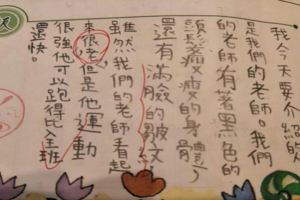 我今天要介紹的
是我們的老師。我們
的老師有著黑色的
頭髮瘦瘦的身體
還有滿臉的皺文
雖然我們的老師看起
來很老但是他運動
很強他可以跑得比全班
還快。